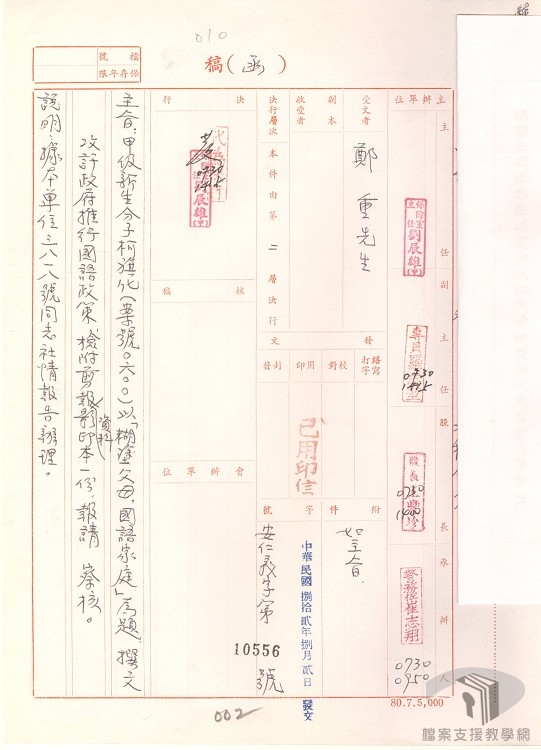 010
稿（函）
檔號
保存年限
主辦單位
主任
副主任
股長
承辦人
保防室主任劉辰雄
0730
1425
0750
1400
警務佐崔志翔
0730
0950
受文者
鄭重先生
副本收受者
決行層次
本件由第二層決行
發文
繕寫打字
校對
用印
封發
已用印信
附件
如主旨
字號
中華民國捌拾貳年捌月貳日發文
安仁字第
10556
號
決行
核稿
會辦單位
主旨：甲級新生分子柯旗化（業號０六００）以「糊塗父母、國語家庭」為題，撰文
攻訐政府推行國語政策，檢附剪報資料影印本一份，報請 察核。
說明：據本單位三八一八號同志社情報告辦理。
002
80.7.5,000
檔案支援教學網